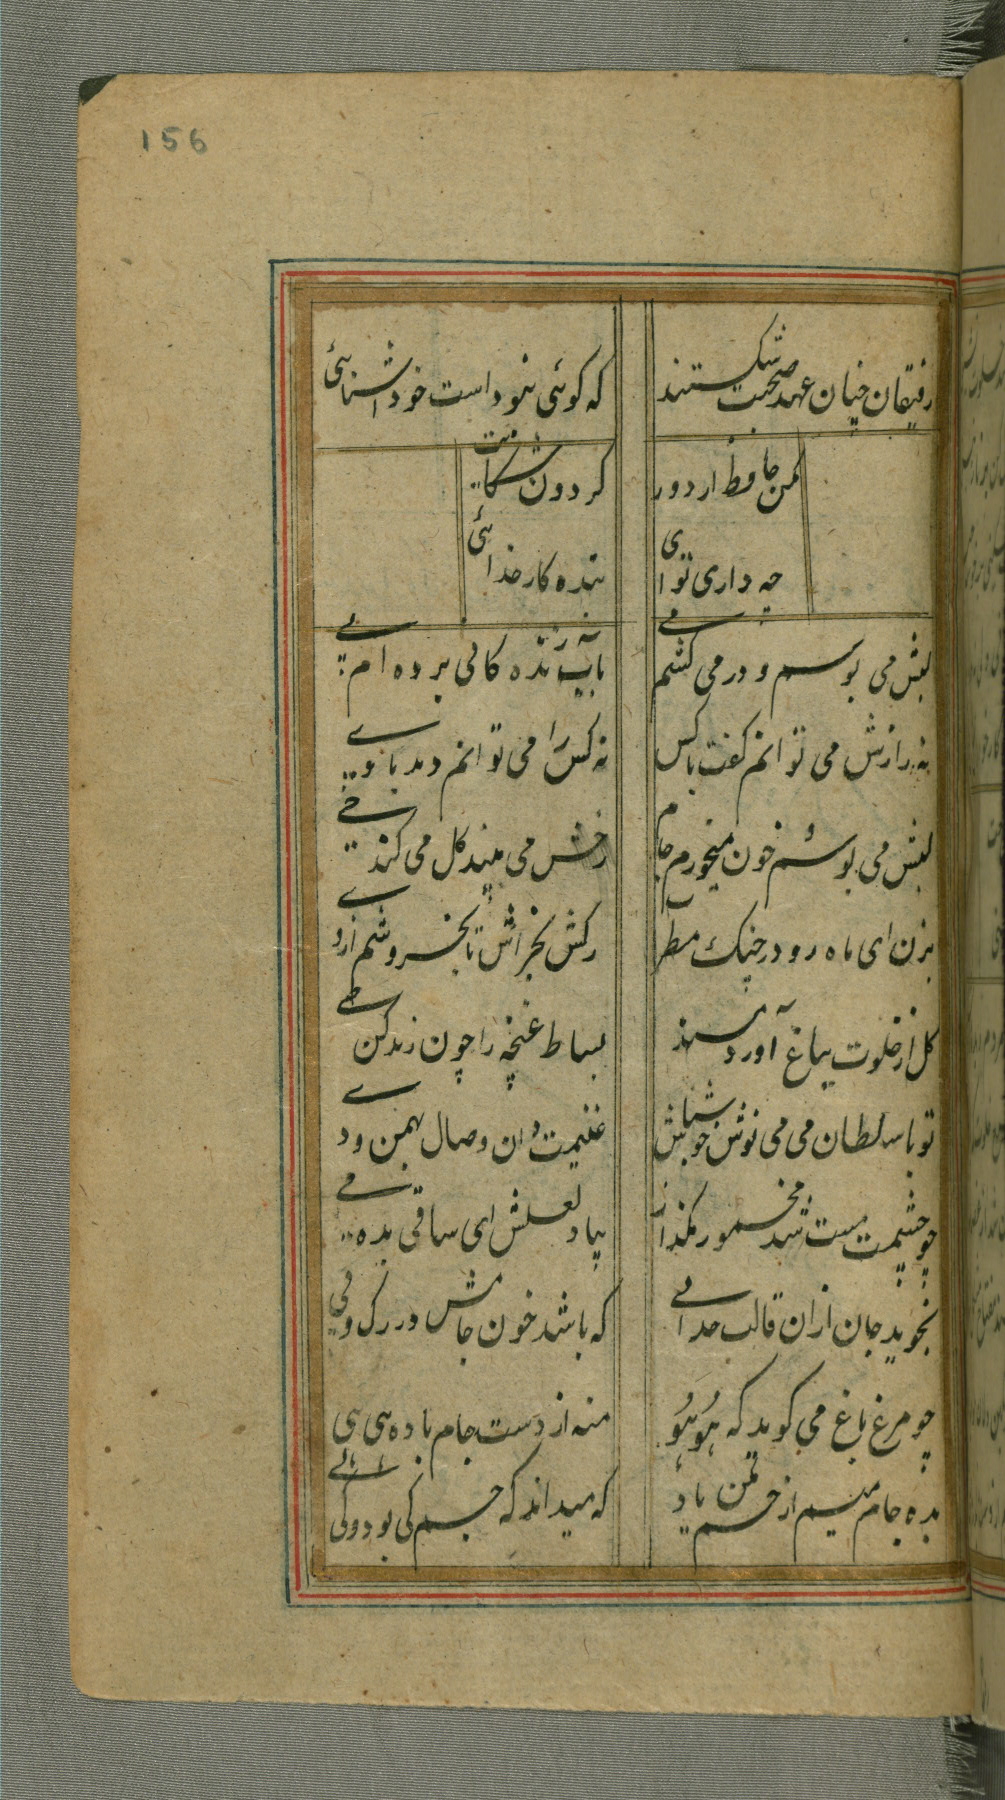 156
رفیقان چنان عهد صحبت شکستند
که کوئی نبود است خود اشنائی
مکن حافظ از دور
کردون شکایت
چه داری تو ای
بنده کار خدائی
لبش می بوسم و در می کشم می
بآب زندکانی برده ام پی
نه رازش می توانم کفت باکس
نه کس را می توانم دید با وی
لبش می بوسم خون میخورم جام
رخش می بیند کل می کند خی
بزن ای ماه رو در چنک مطرب
رکش بخراش تا بخروشم از وی
کل از خلوت بباغ آورد مسند
بساط غنچه را چون زند کن طی
تو با سلطان می می نوش خوش باش
غنیمت دان وصال بهمن و دی
چو چشمت مست شد مخمور مکذار
بیاد لعلش ای ساقی بده می
نجوید جان ازان قالب جدائی
که باشد خون جامش در رک و پی
چو مرغ باغ می کوید که هُو هُو
منه از دست جام باده هی هی
بده جام میم از جم یاد
که میداند که جم کی بود و کی کی